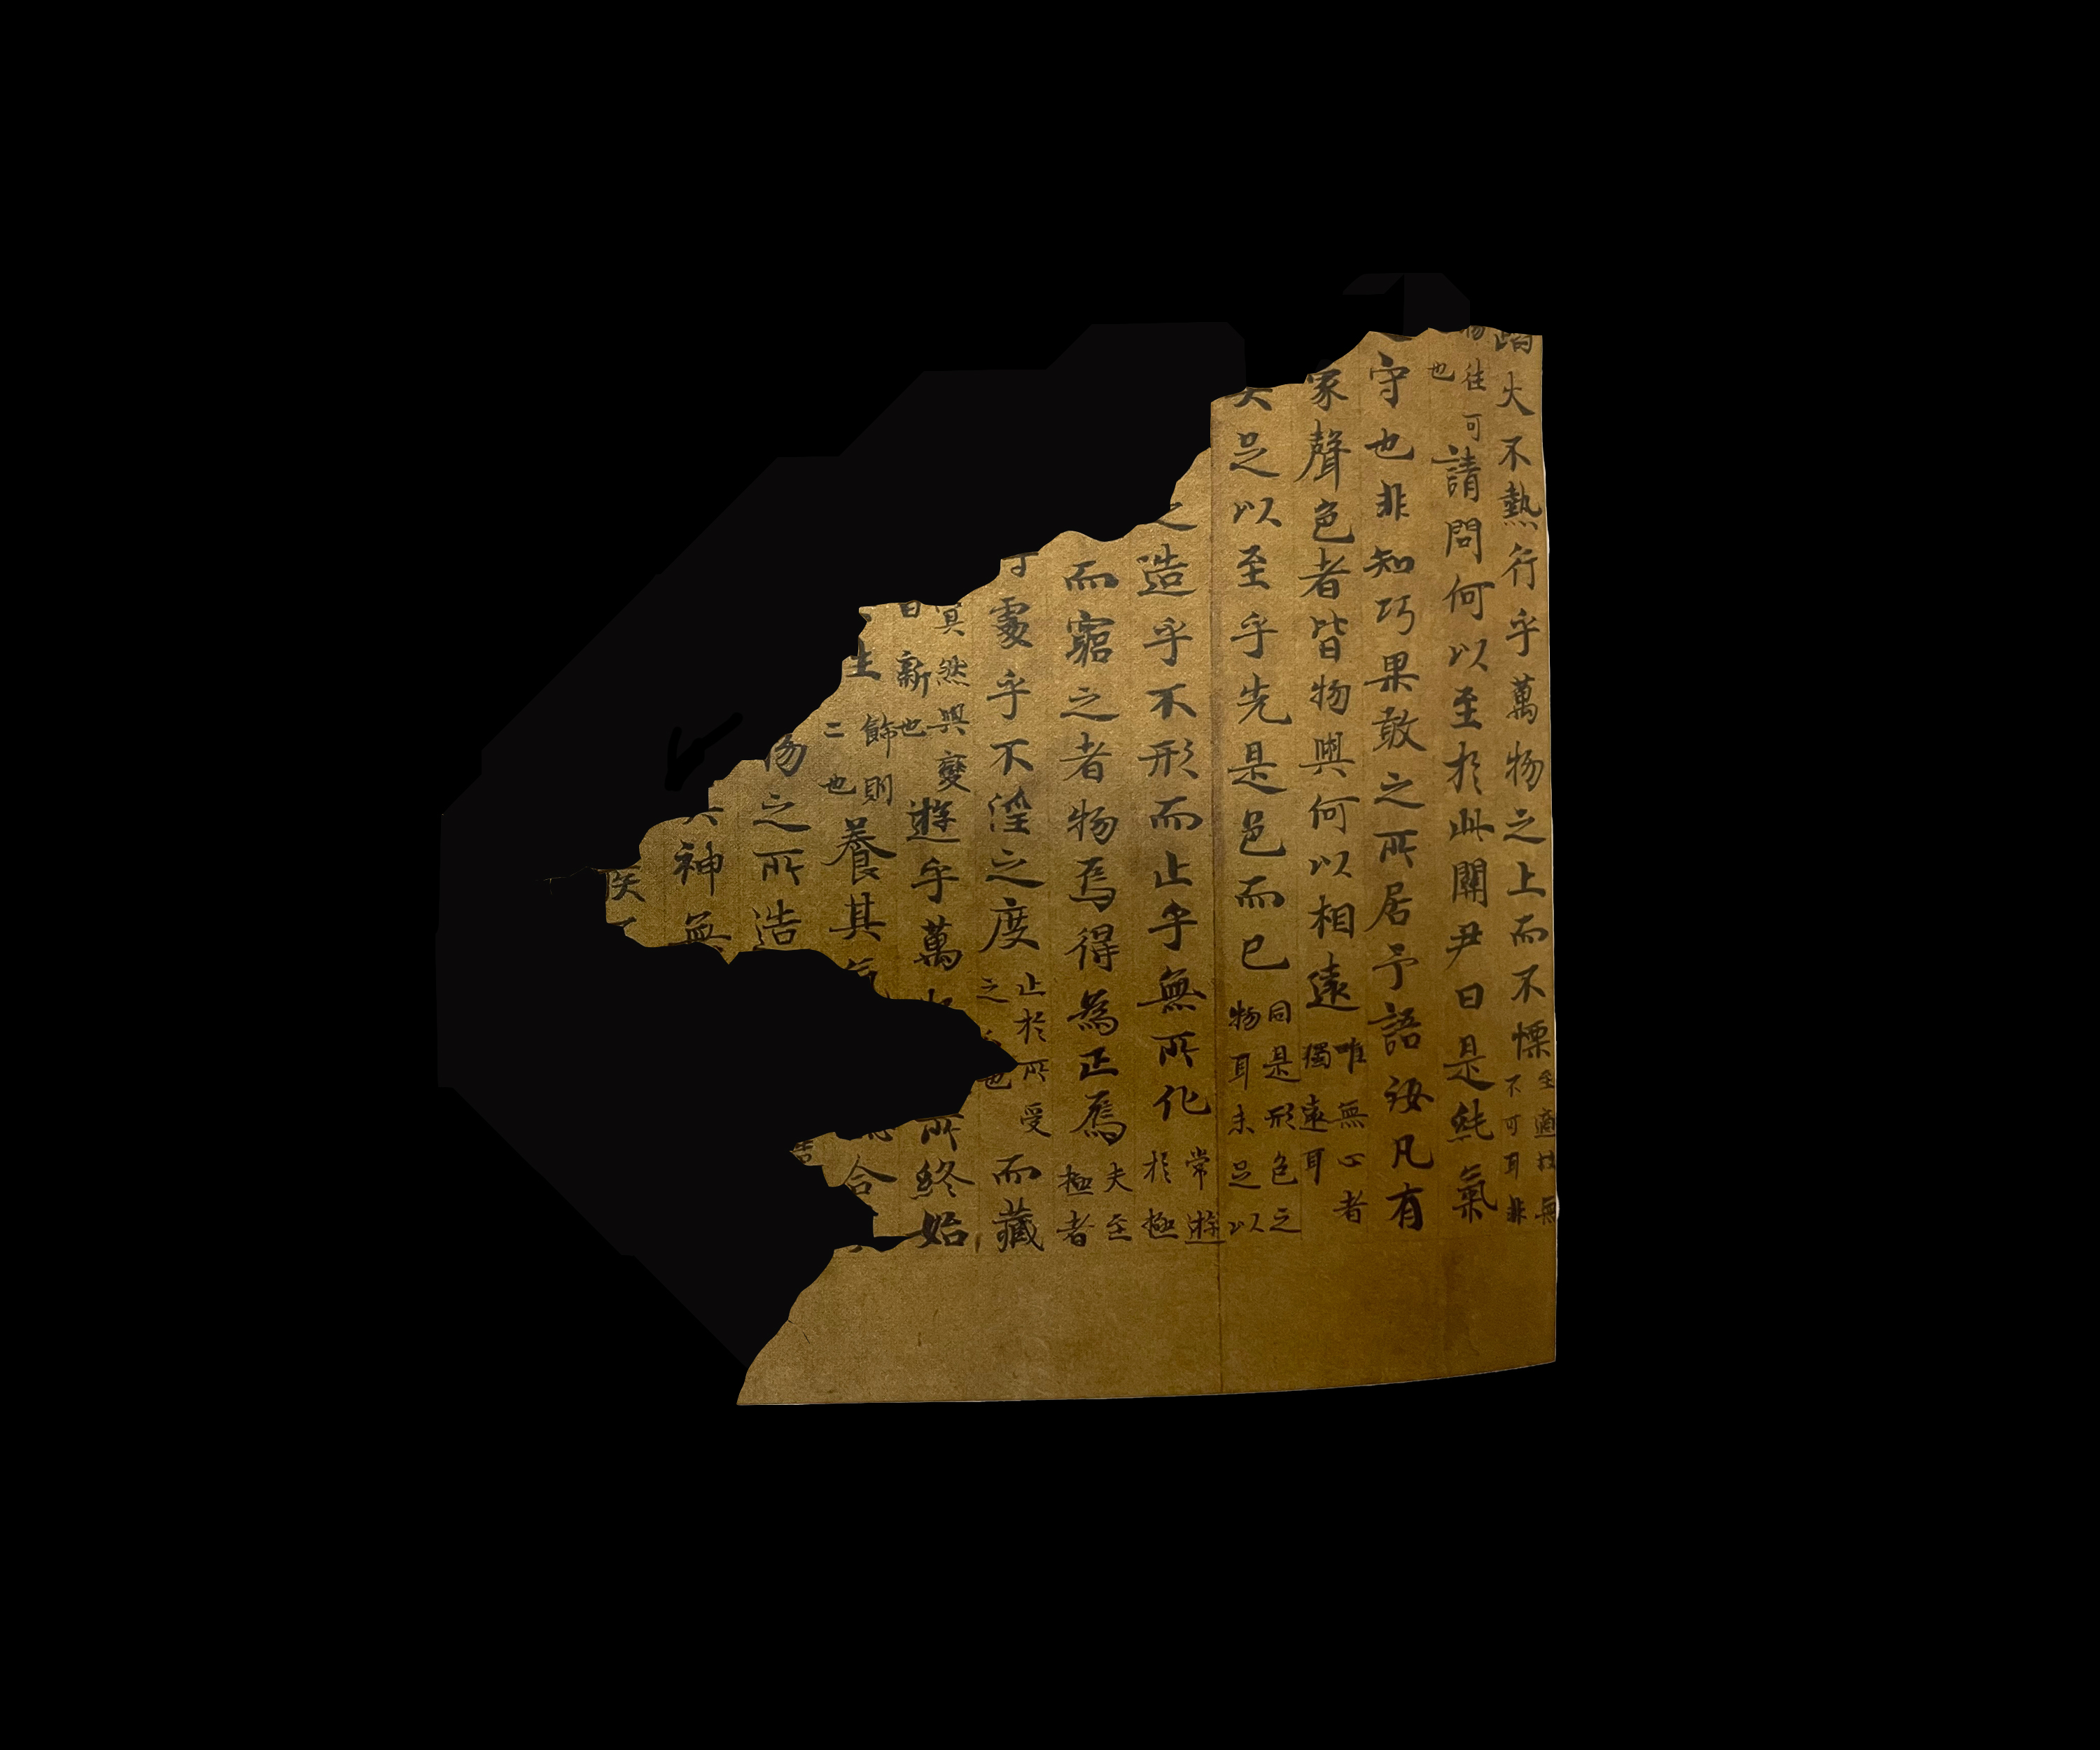 蹈火不熱行乎萬物之上而不慄至適故無不可耳非
物往可也請問何以至於此關尹曰是純氣
守也非知巧果敢之所居予語汝凡有
家聲色者皆物與何以相遠唯無心者獨遠耳
足以至乎先是色而已同是形色之物耳未足以
造乎不形而止乎無所化常遊於極
而窮之者物焉得為正焉夫至極者
處乎不淫之度止於所受之也而藏
冥然與變日新也遊乎萬所終始
飾則二也養其合
物之所造
神無